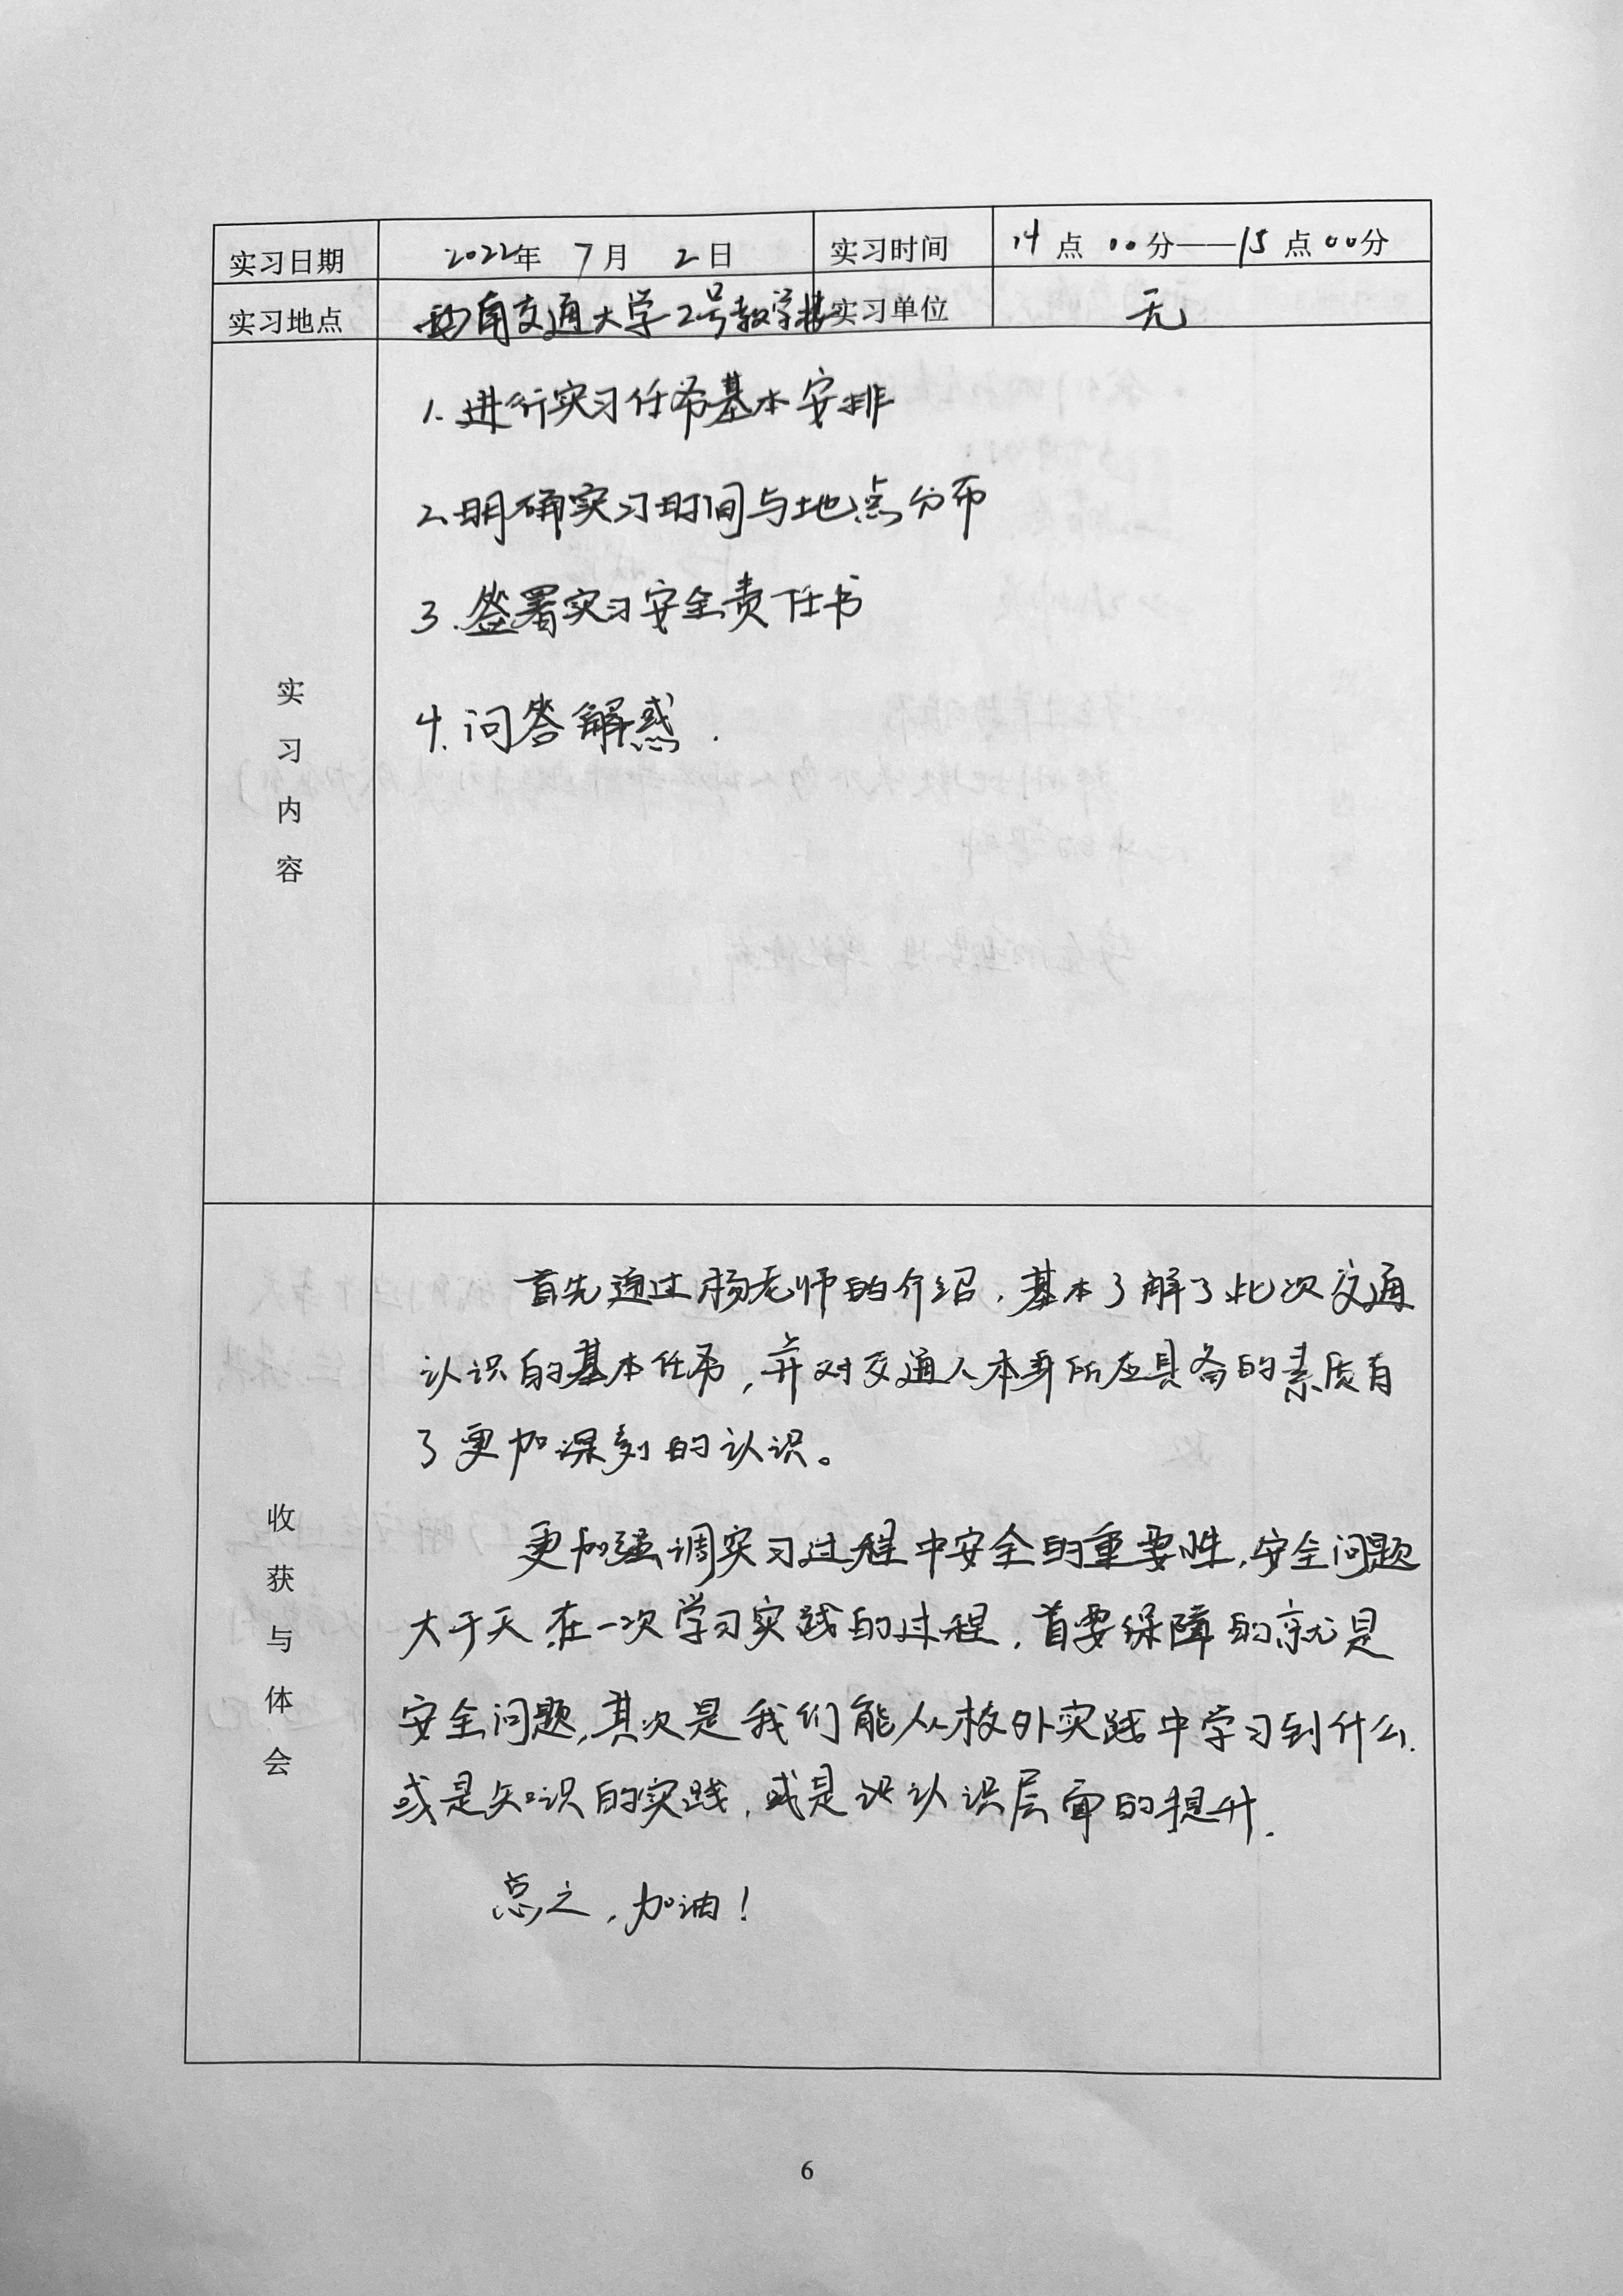 实习日期 2022年 7月 2日 实习时间 14点00分——15点00分
实习地点 西南交通大学2号教学楼 实习单位 无
实习内容
1.进行实习任务基本安排
2.明确实习时间与地点分布
3.签署实习安全责任书
4.问答解惑.
收获与体会
首先通过杨老师的介绍,基本了解了此次交通
认识的基本任务,并对交通人本身所应具备的素质有
了更加深刻的认识。
更加强调实习过程中安全的重要性,安全问题
大于天.在一次学习实践的过程,首要保障的就是
安全问题,其次是我们能从校外实践中学习到什么.
或是知识的实践,或是认识层面的提升.
总之,加油!
6